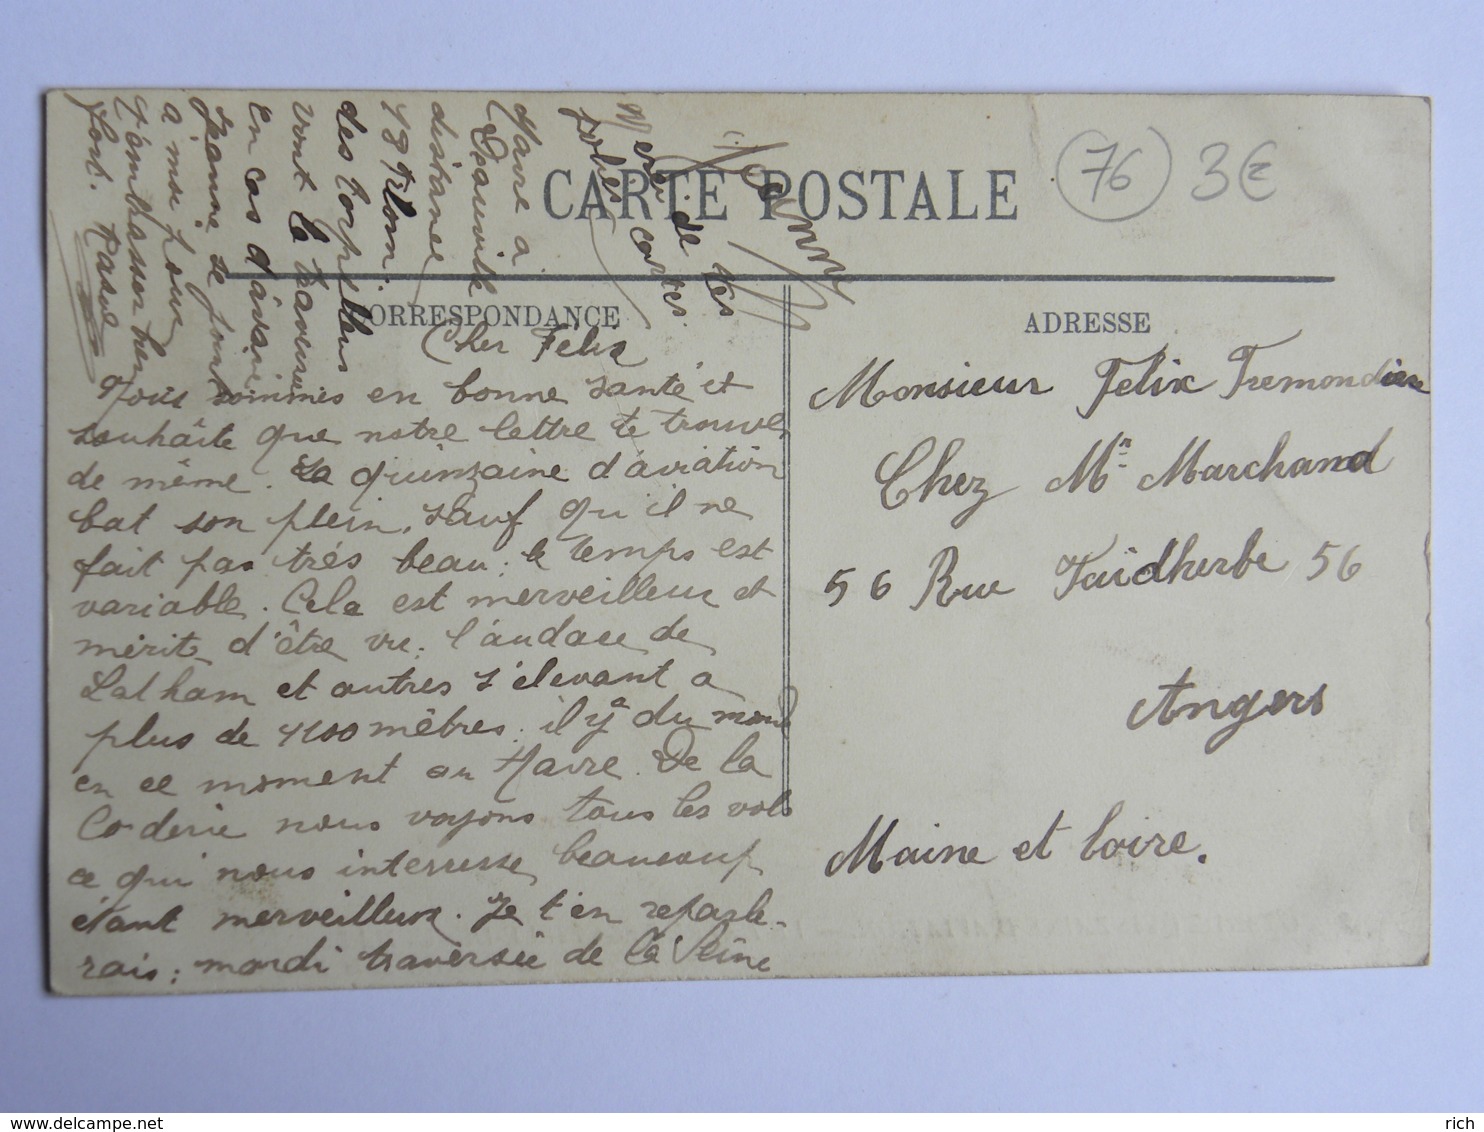 CARTE POSTALE
76
3€
CORRESPONDANCE
ADRESSE
Cher Félix
Nous sommes en bonne santé et
souhaite que notre lettre te trouve
de même. La quinzaine d'aviation
bat son plein, sauf qu'il ne
fait pas très beau; le temps est
variable. Cela est merveilleux et
mérite d'être vu; l'audace de
Latham et autres s'élevant a
plus de 1100 mètres; il y a du monde
en ce moment au Havre. De la
Corderie nous voyons tous les vols
ce qui nous interresse beaucoup
étant merveilleux. Je t'en reparle-
rais; mardi traversée de la Seine
Havre a
Deauville
distance
18 Kilom.
des torpilleurs
vont la traversée
En cas d'avarie
Jeanne se joint
a moi pour
t'embrasser bien
fort.
Merci de tes
jolies cartes.
Monsieur Felix Tremondière
Chez Mr Marchand
56 Rue Faidherbe 56
Angers
Maine et Loire.
delcampe.net
rich